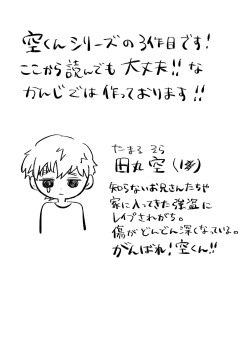 空くんシリーズの3作目です!
ここから読んでも大丈夫!!な
かんじでは作っております!!
たまる そら
田丸 空
知らないお兄さんたちや
家に入ってきた強盗に
レイプされがち。
傷がどんどん深くなっている。
がんばれ!空くん!!